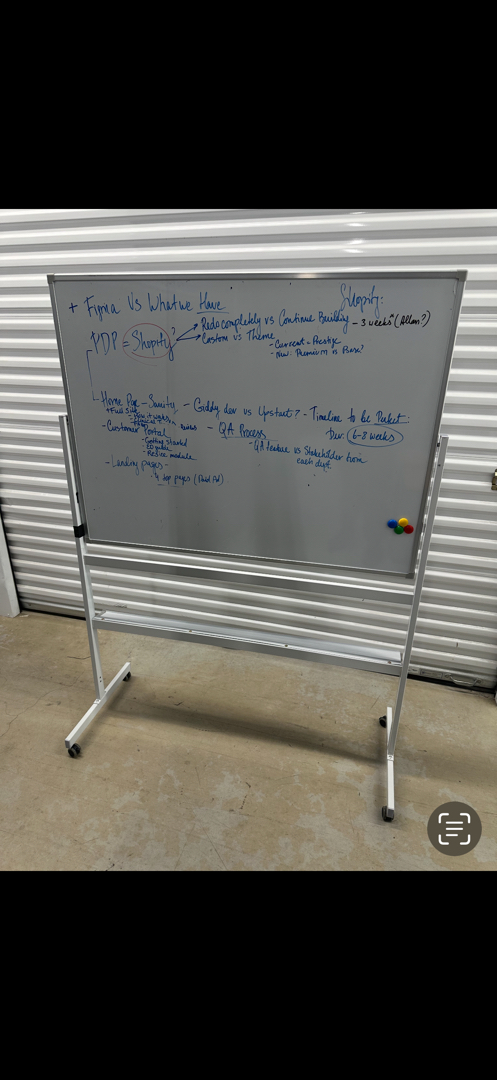 + Figma Vs What we Have
Shopify:
PDP = Shopify?
Redo completely vs Continue Building - 3 weeks (Allan?)
Custom vs Theme
- Current = Prestige
- New: Premium is Base?
Home Page - Sanity - Giddy dev vs Upstart? - Timeline to be
+ Full Site
- How it works
Dev: 6-8 weeks
- Customer Portal
- QA Process
- QA Feature vs Stakeholder from
each dept
- Getting Started
- Resize module
- Landing pages -
- 4 top pages (Paid Ad)